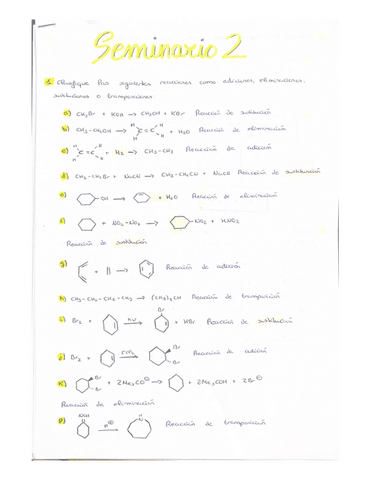 Seminario 2
1. Clasifique las siguientes reacciones como adiciones, eliminaciones,
sustituciones o transposiciones.
a) CH₃Br + KOH → CH₃OH + KBr Reacción de sustitución
b) CH₃-CH₂OH → H H C=C H H + H₂O Reacción de eliminación
c) H H C=C H H + H₂ → CH₃-CH₃ Reacción de adición
d) CH₃-CH₂Br + NaCN → CH₃-CH₂CN + Reacción de sustitución
e) OH → + H₂O Reacción de eliminación
f) + NO₂-NO₂ → NO₂ + HNO₂
Reacción de sustitución
g) + → Reacción de adición
h) CH₃-CH₂-CH₂-CH₃ → (CH₃)₃CH Reacción de transposición
i) Br₂ + → hν Br + HBr Reacción de sustitución
j) Br₂ + → CCl₄ Br Br Reacción de adición
k) Br Br + 2Me₃CO⊖ → + 2Me₃COH + 2Br⊖
Reacción de eliminación
l) H⊕ → H N Reacción de transposición